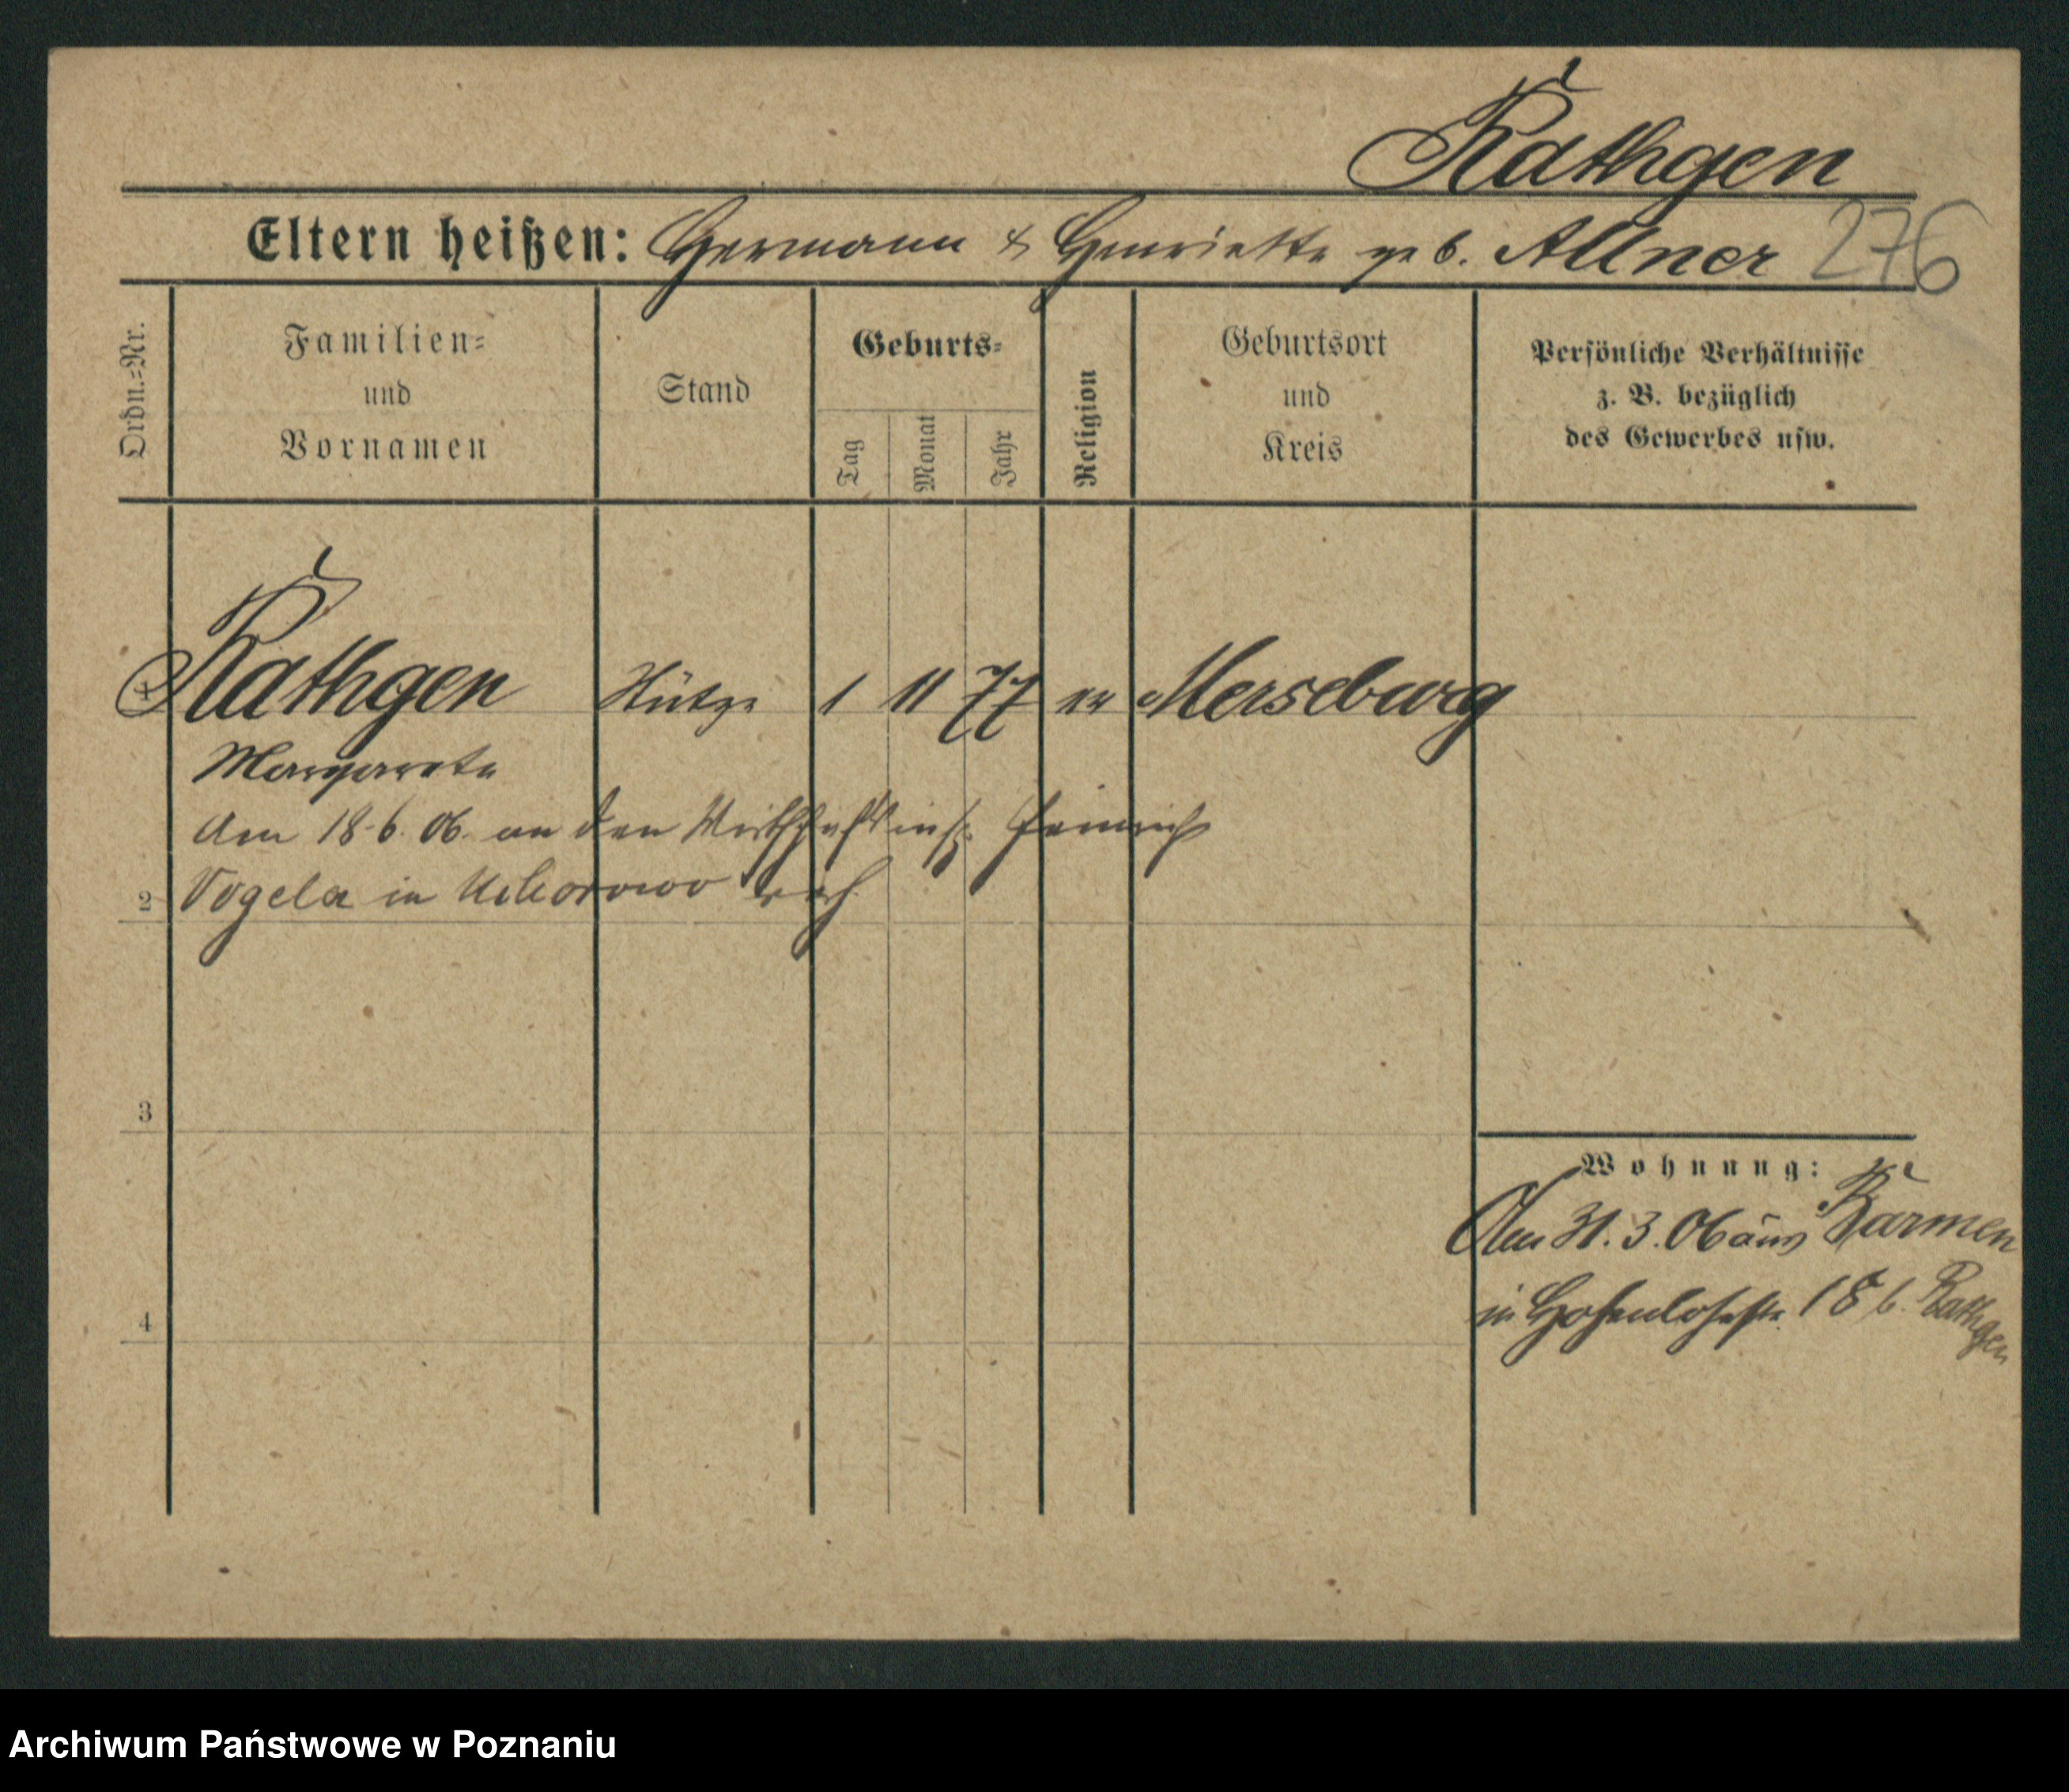 Rathgen
Eltern heißen: Hermann & Henriette geb. Allner 276
Ordn.-Nr.
Familien-
und
Vornamen
Stand
Geburts-
Tag
Monat
Jahr
Religion
Geburtsort
und
Kreis
Persönliche Verhältnisse
z. B. bezüglich
des Gewerbes usw.
1 Rathgen Stütze 1 11 77 ev Merseburg
Margarete
Am 18.6.06. an den Wirthschaftsinsp. Heinrich
2 Vogeler in verh.
3
Wohnung:
Am 31.3.06 aus Barmen
in Hohenlohestr. 18 b. Rathgen
4
Archiwum Państwowe w Poznaniu